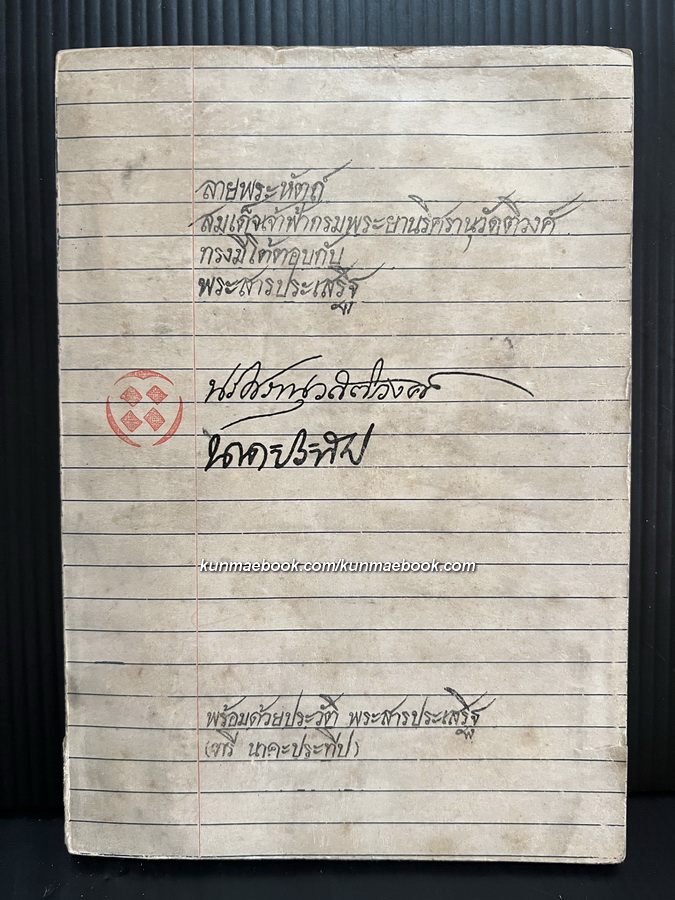 ลายพระหัตถ์
สมเด็จเจ้าฟ้ากรมพระยานริศรานุวัดติวงศ์
ทรงมีโต้ตอบกับ
พระสารประเสริฐ
นริศรานุวัดติวงศ์
นาคะประทีป
kunmaebook.com/kunmaebook.com
พร้อมด้วยประวัติ พระสารประเสริฐ
(ตรี นาคะประทีป)